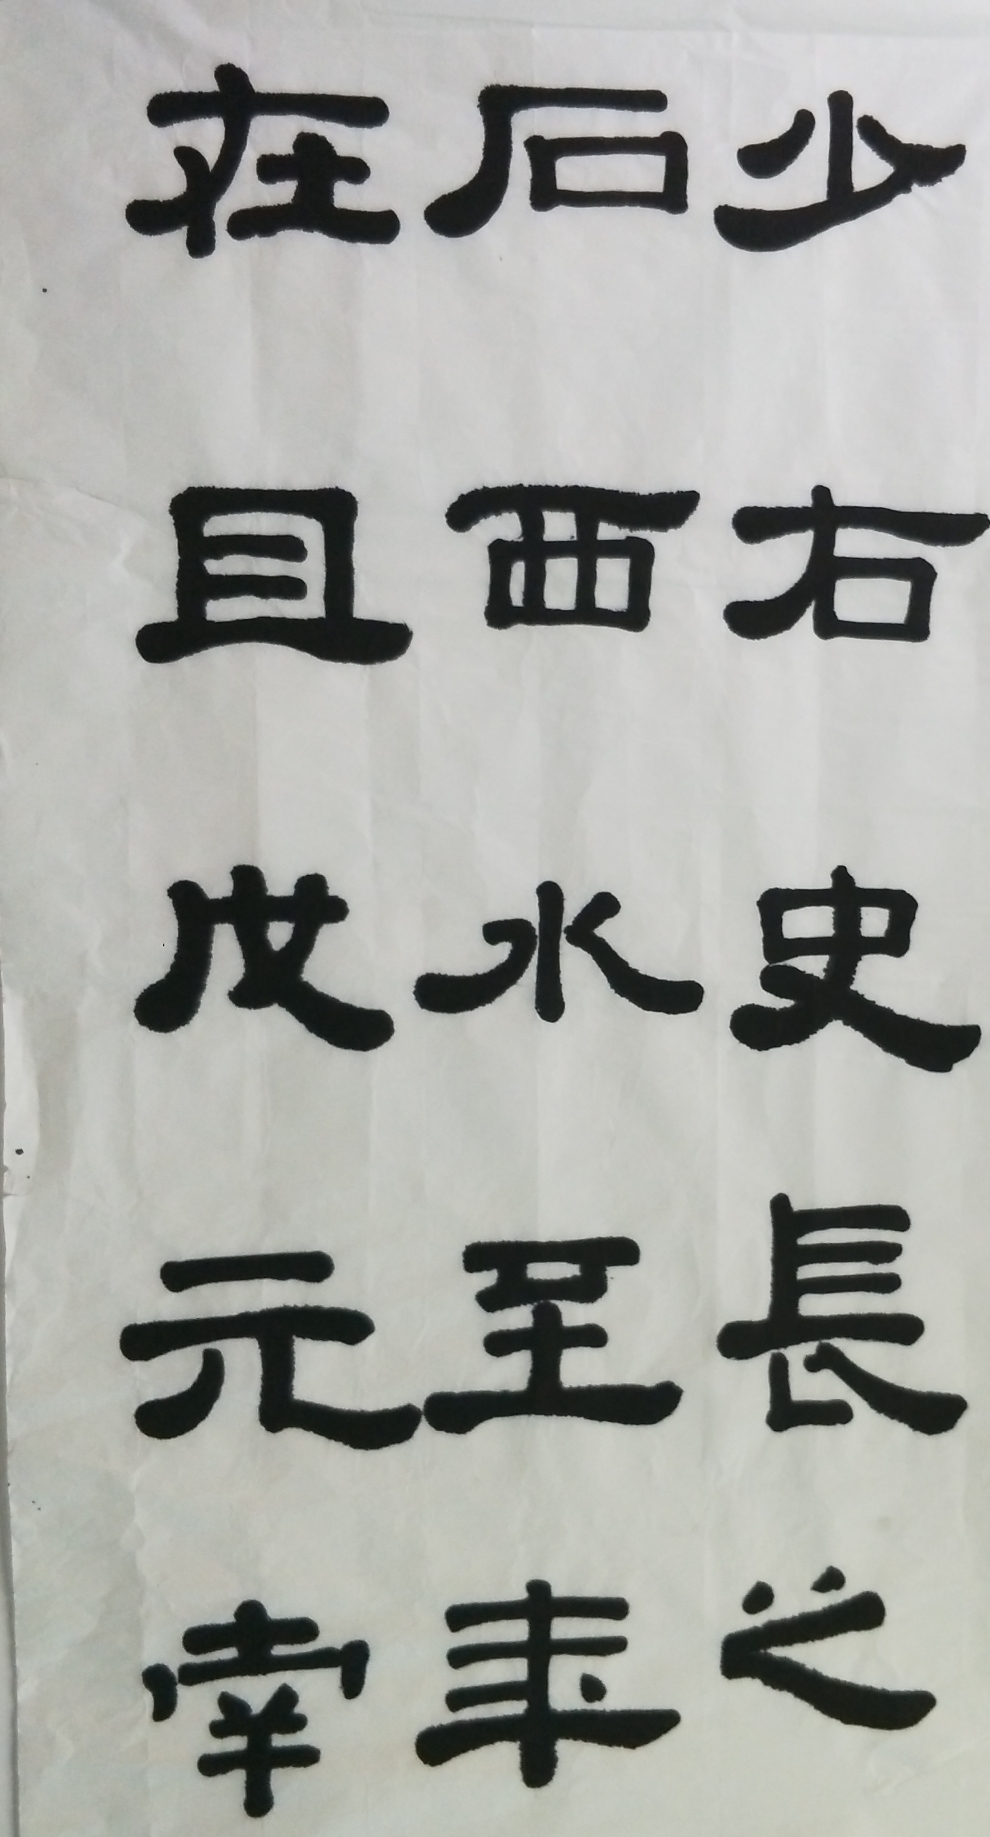 少右史長之
石西水至年
在且元南